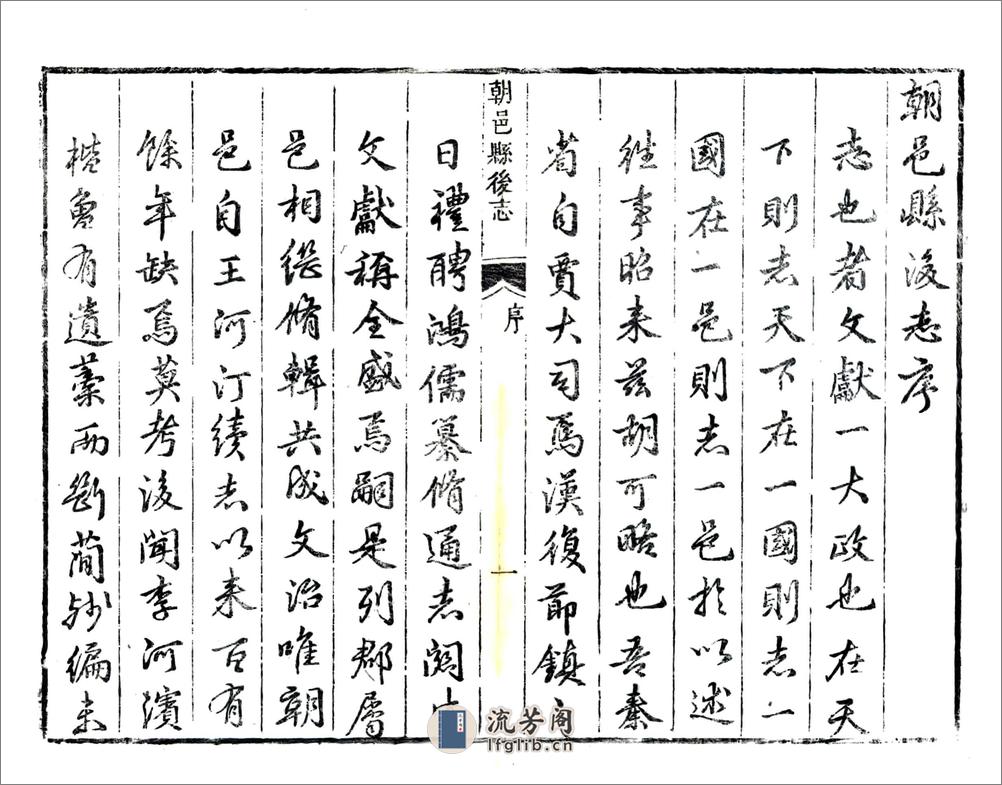 朝邑縣後志序
志也者文獻一大政也在天
下則志天下在一國則志一
國在一邑則志一邑於以述
往事昭来兹胡可略也吾秦
省自賈大司馬漢復節鎮
朝邑縣後志
序
一
日禮聘鴻儒纂脩通志関中
文獻稱全盛焉嗣是列郡屬
邑相繼脩輯共成文治唯朝
邑自王河汀續志以来百有
餘年缺焉莫考後聞李河濱
楷曽有遺藁而斷蕳殘編未
流芳阁
lfglib.cn